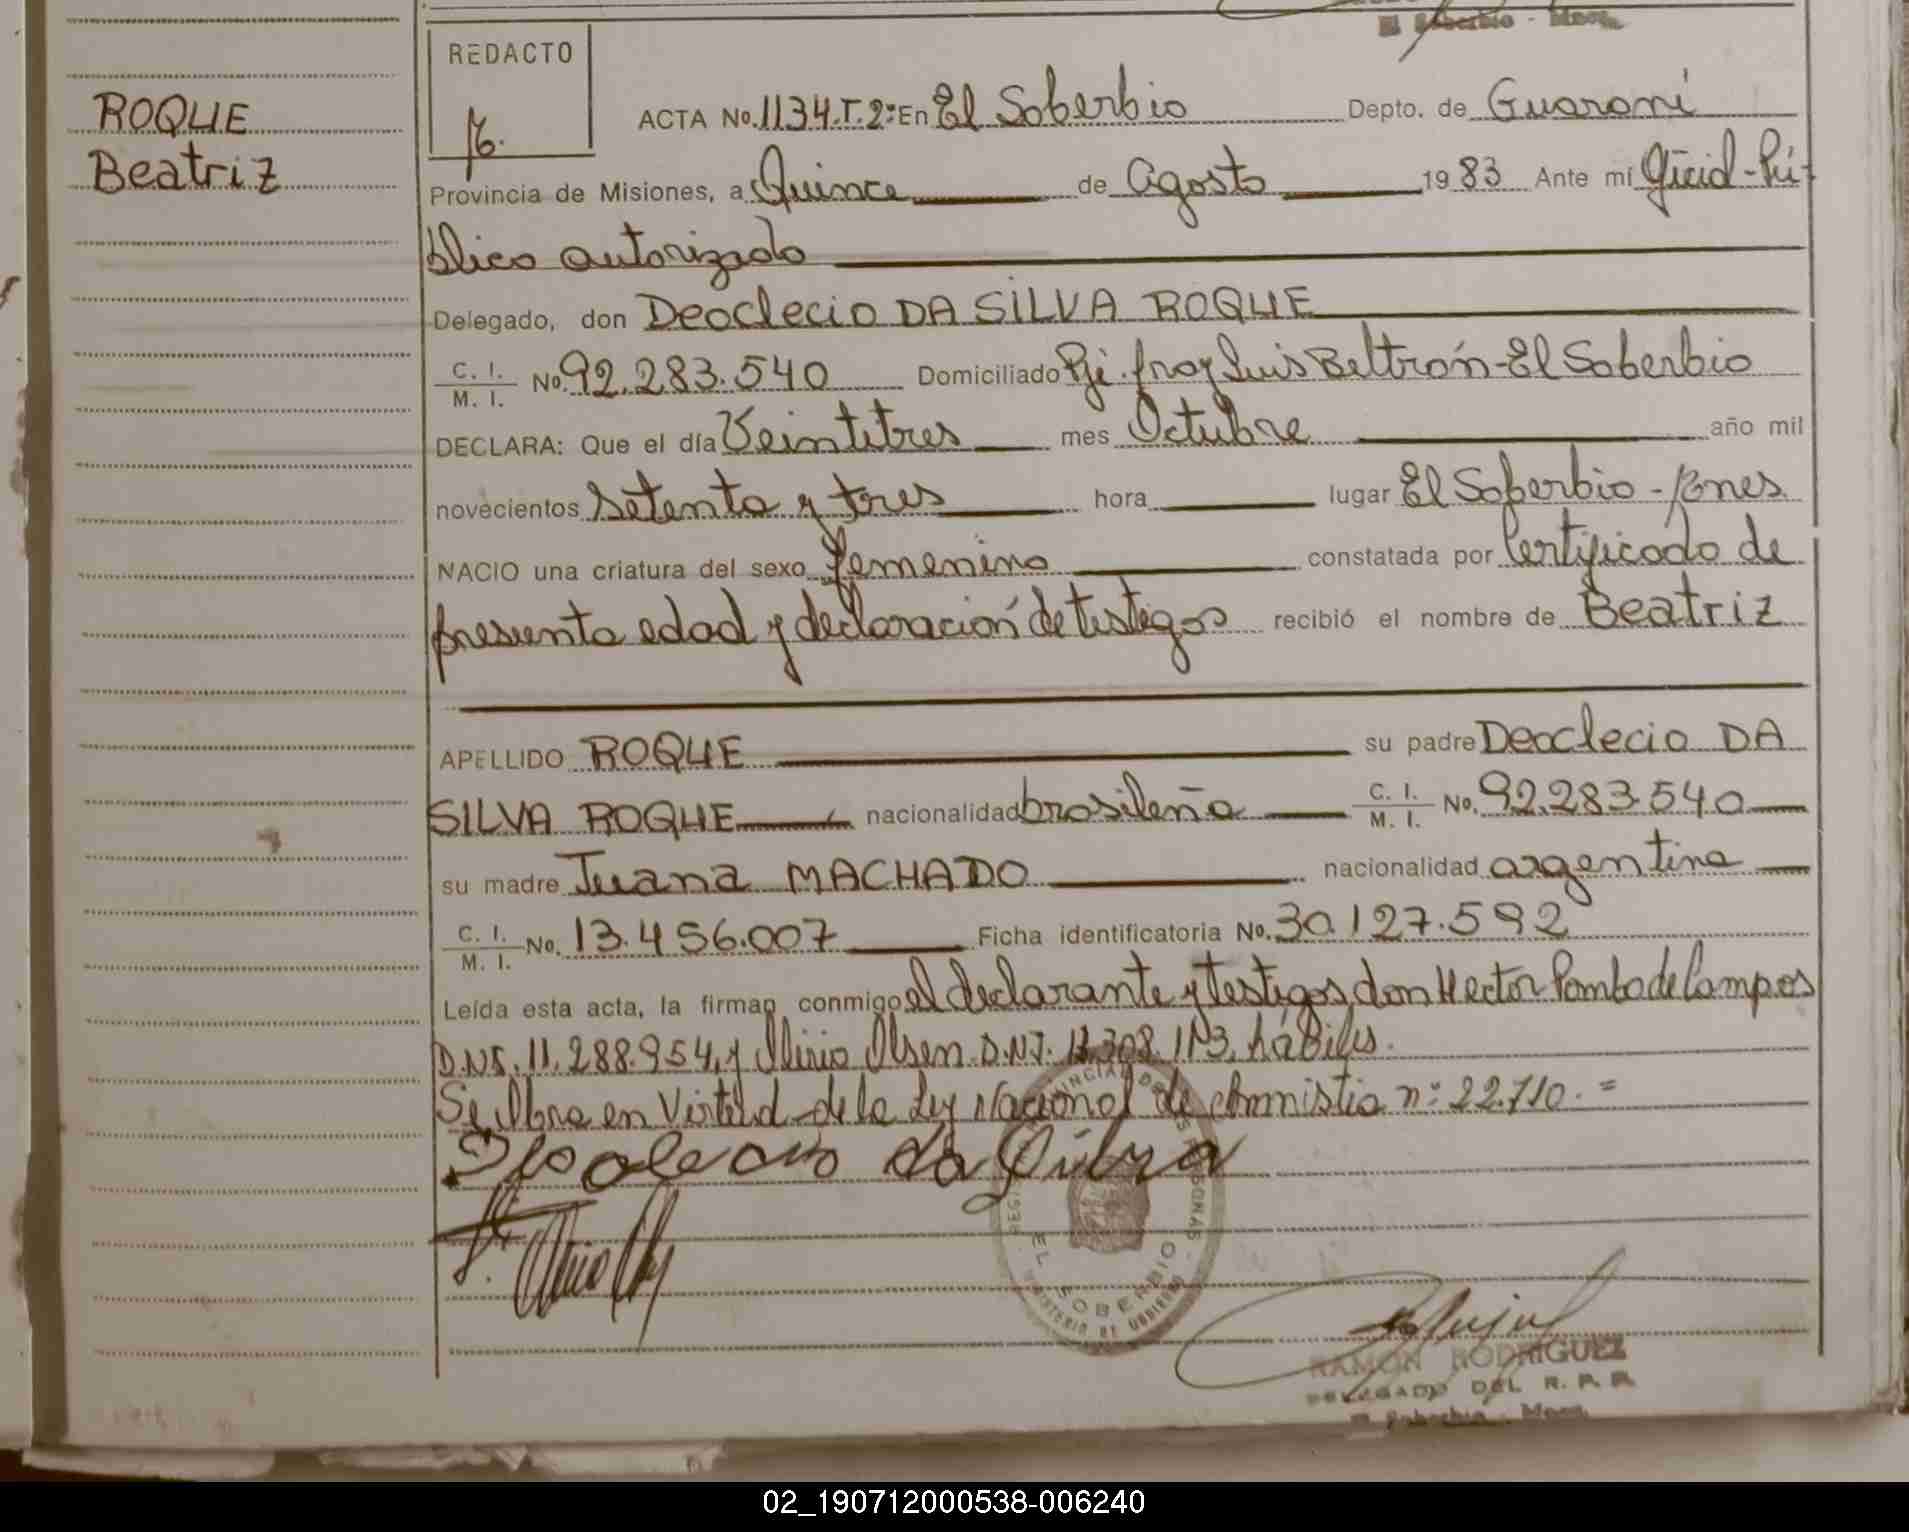 El Soberbio - Mnes.
REDACTO
ROQUE
Beatriz
ACTA No. 1134.T.2º En El Soberbio Depto. de Guaraní
Provincia de Misiones, a Quince de Agosto 1983 Ante mí Oficial-Pú-
blico autorizado
Delegado, don Deoclecio DA SILVA ROQUE
C. I. M. I. No. 92.283.540 Domiciliado Pje. fray Luis Beltrán-El Soberbio
DECLARA: Que el día Veintitres mes Octubre año mil
novecientos Setenta y tres hora lugar El Soberbio - Mnes
NACIO una criatura del sexo femenino constatada por Certificado de
presunta edad y declaración de testigos recibió el nombre de Beatriz
APELLIDO ROQUE su padre Deoclecio DA
SILVA ROQUE nacionalidad brasileña C. I. M. I. No. 92.283.540
su madre Juana MACHADO nacionalidad argentina
C. I. M. I. No. 13.456.007 Ficha identificatoria No. 30.127.592
Leída esta acta, la firman conmigo el declarante y testigos don Hector Pombo de Campos
D.N.I. 11.288.954, y Olsen D.N.I. hábiles.
Se Labra en Virtud de la Ley Nacional de Amnistia nº 22.710.=
Deoclecio da Silva
REGISTRO PROVINCIAL DE LAS PERSONAS
EL SOBERBIO
MINISTERIO DE GOBIERNO
RAMON RODRIGUEZ
DELEGADO DEL R. P. P.
El Soberbio - Mnes.
02_190712000538-006240